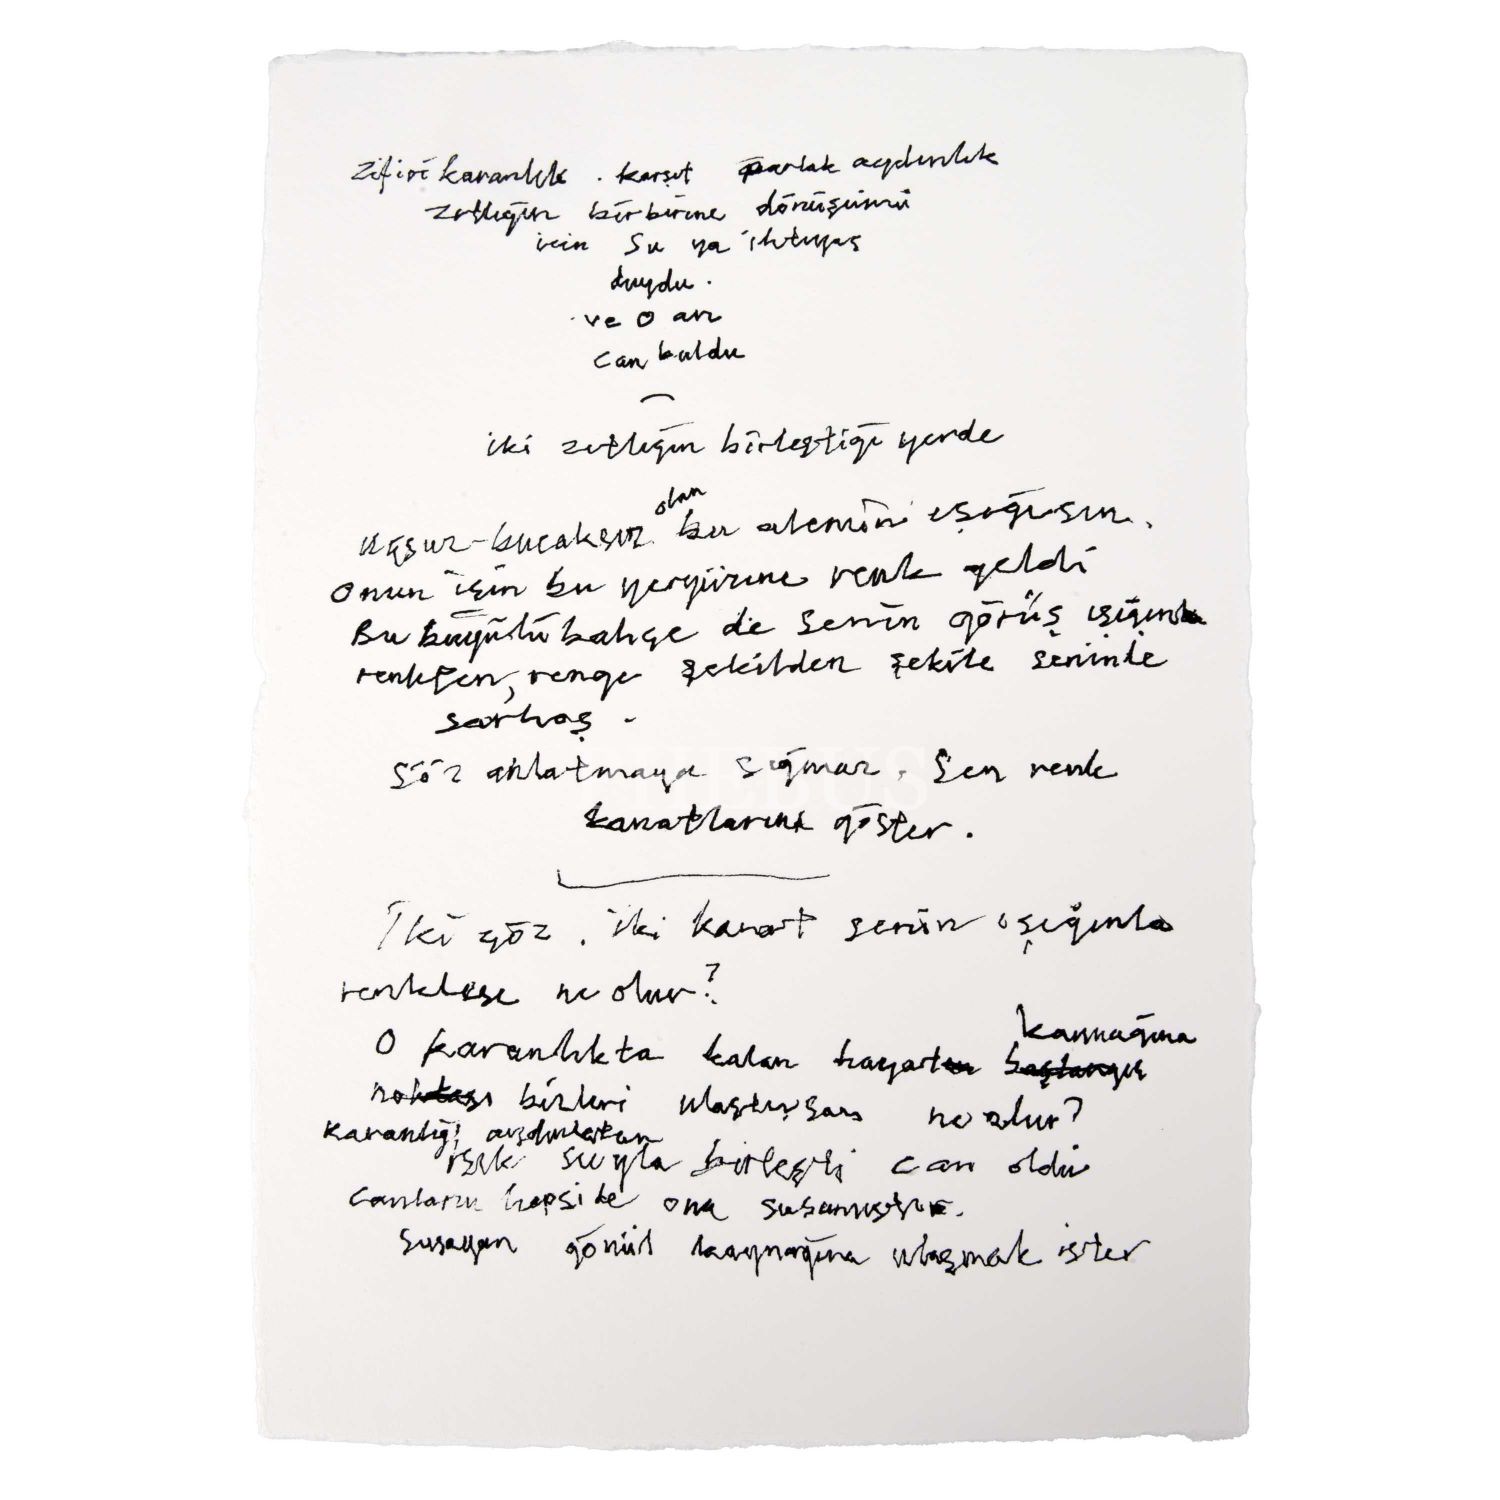 Zifiri karanlık . karşıt parlak aydınlık
zıtlığın birbirine dönüşümü
için Su ya ihtiyaç
duydu .
ve O an
can buldu
iki zıtlığın birleştiği yerde
olan
uçsuz-bucaksız bu alemin ışığısın .
Onun için bu yeryüzüne renk geldi
Bu büyülü bahçe de senin görüş ışığınla
renkten, renge şekilden şekile seninle
sarhoş .
Söz anlatmaya sığmaz . Sen renk
kanatlarını göster .
İki göz . iki kanat senin ışığınla
renklense ne olur ?
kaynağına
O karanlıkta kalan hayatın başlangıç
noktası bizleri ulaştırsan ne olur ?
karanlığı aydınlatan
ışık suyla birleşti can oldu
canların hepside ona susamıştır .
Susayan gönül kaynağına ulaşmak ister
PHEBUS